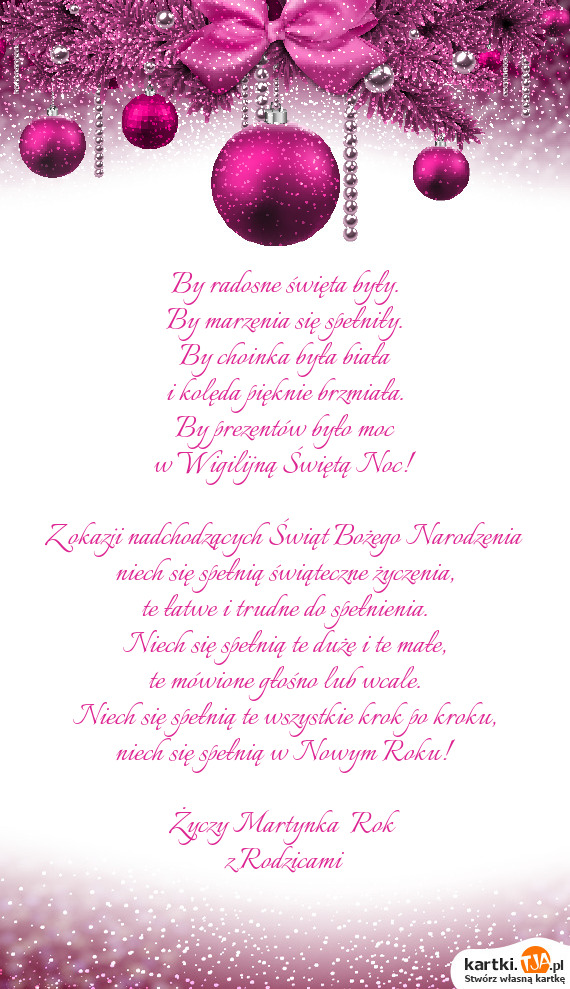 By radosne święta były.
By marzenia się spełniły.
By choinka była biała
i kolęda pięknie brzmiała.
By prezentów było moc
w Wigilijną Świętą Noc!
Z okazji nadchodzących Świąt Bożego Narodzenia
niech się spełnią świąteczne życzenia,
te łatwe i trudne do spełnienia.
Niech się spełnią te duże i te małe,
te mówione głośno lub wcale.
Niech się spełnią te wszystkie krok po kroku,
niech się spełnią w Nowym Roku!
Życzy Martynka Rok
z Rodzicami
kartki.TJA.pl
Stwórz własną kartkę